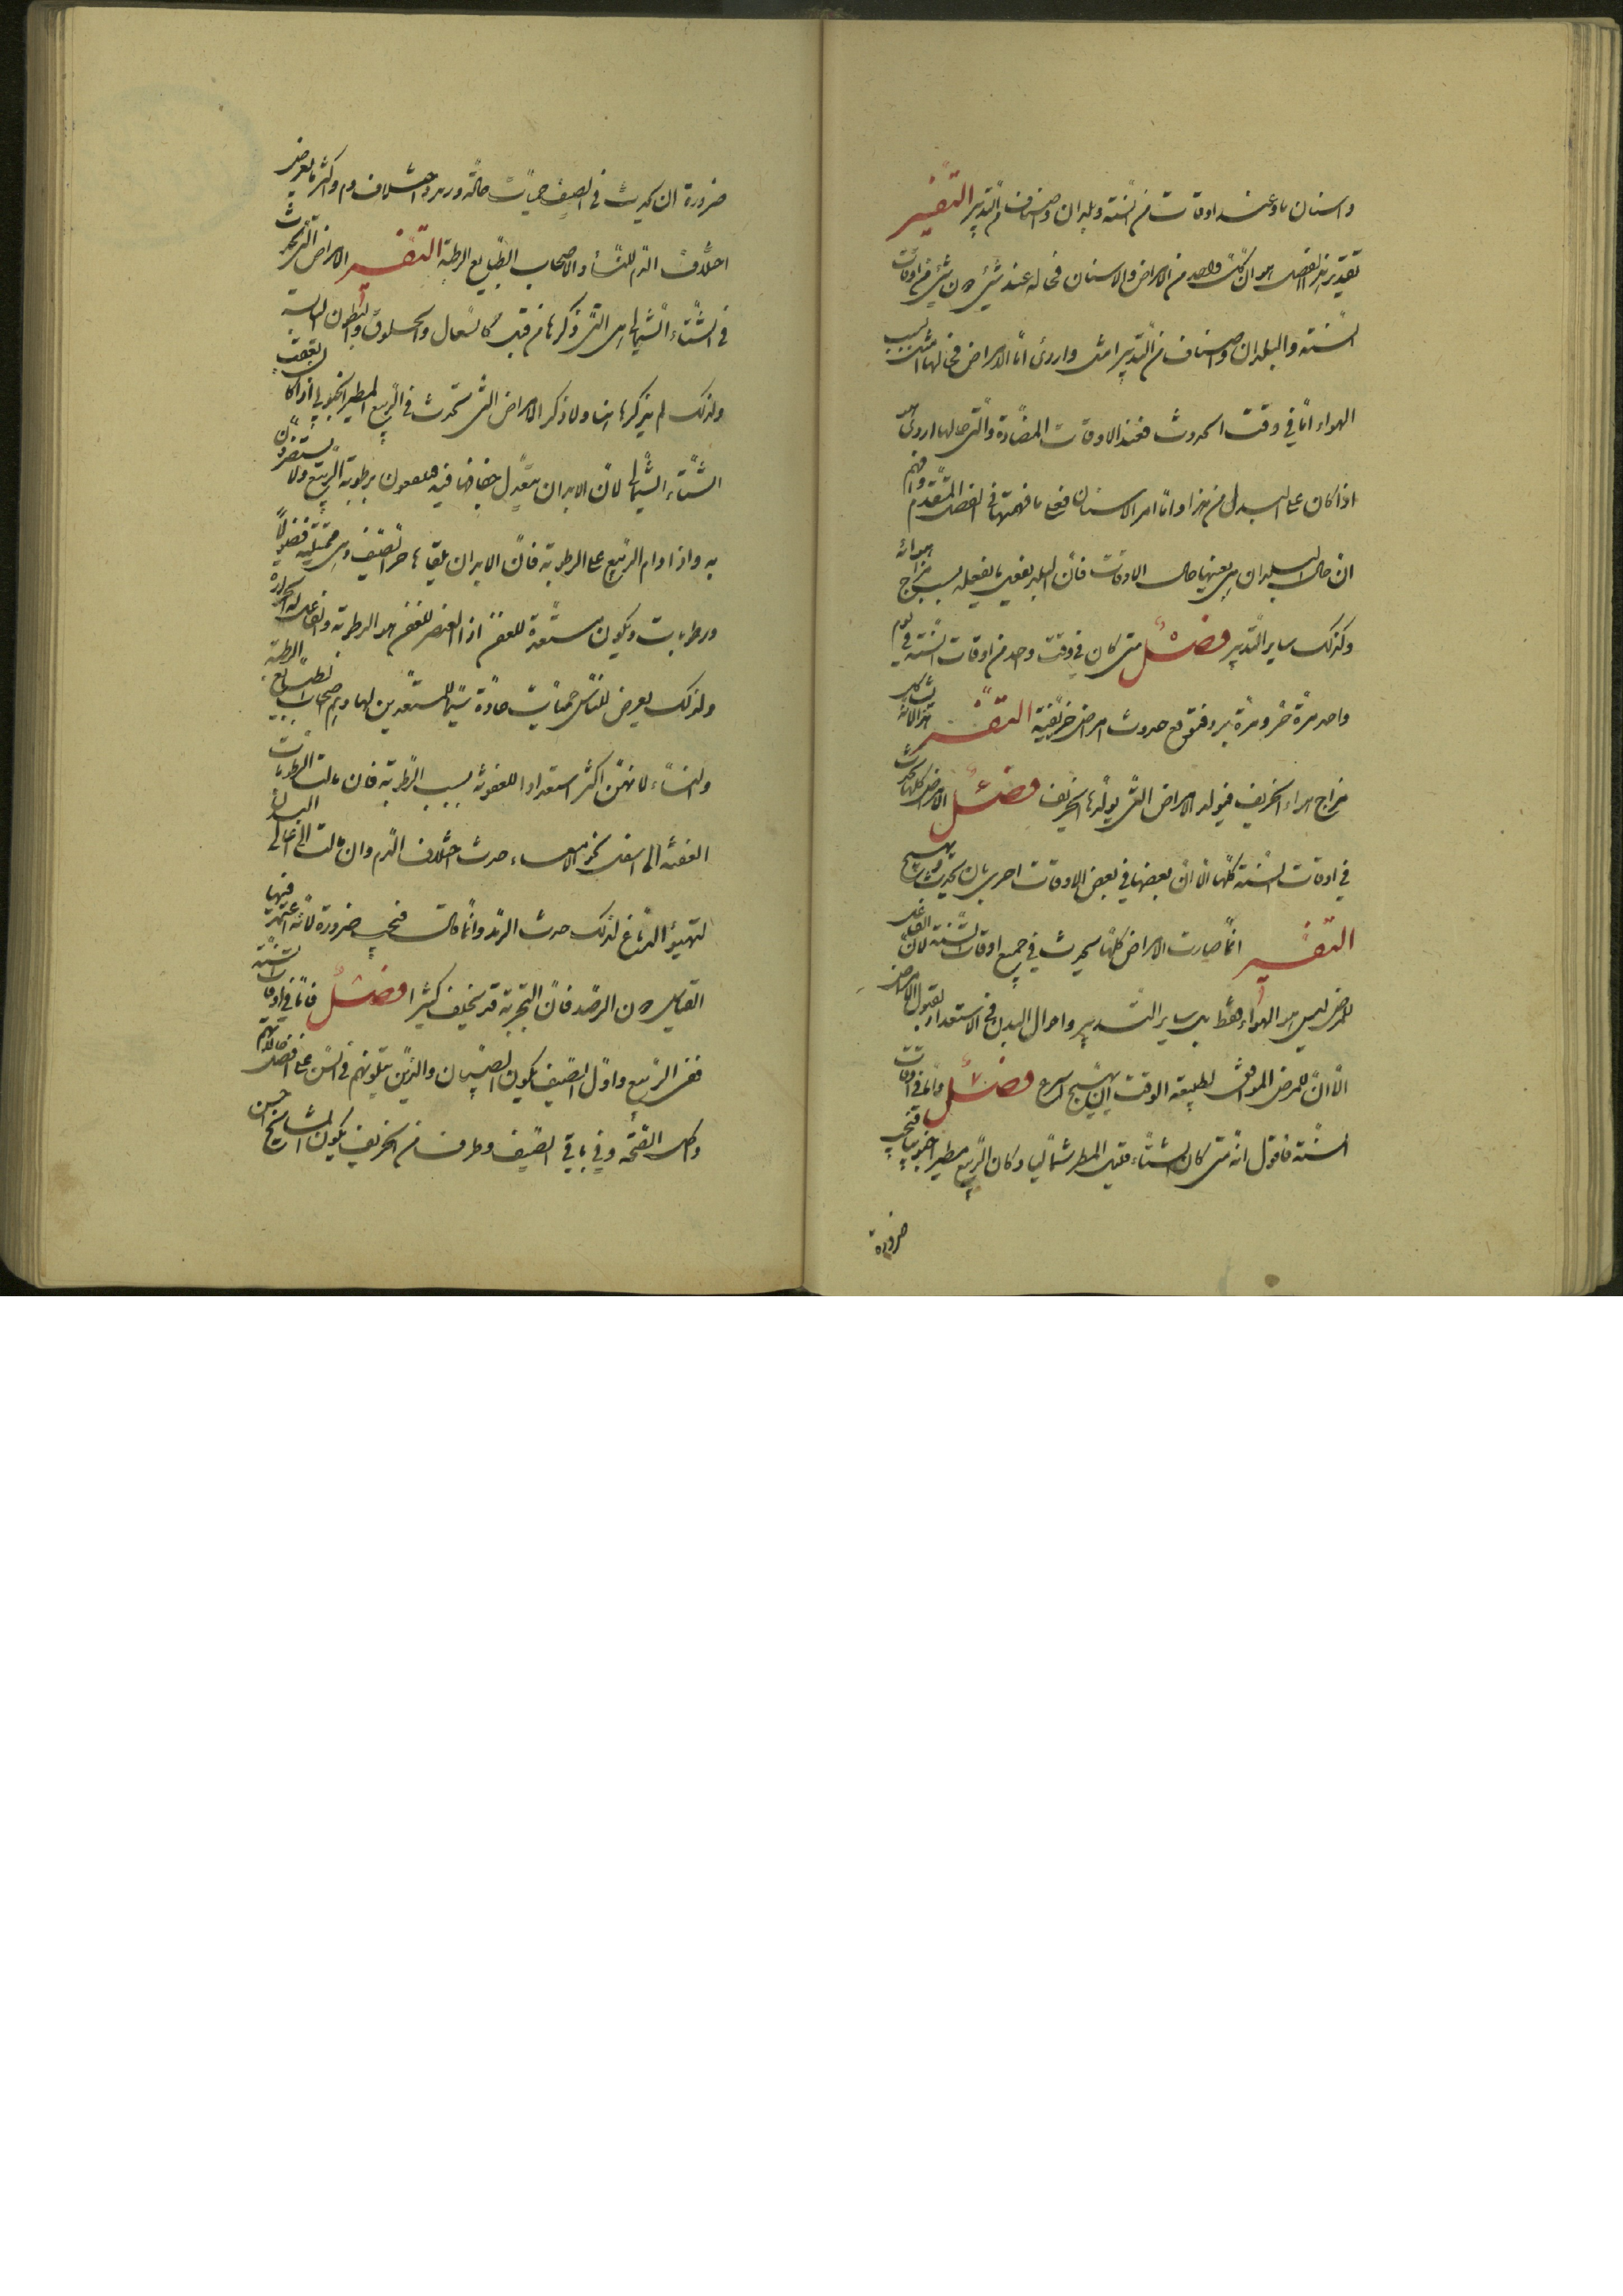 واسنان ما وعند اوقات من السنة وبلدان واصناف من التدبير التفسير
تقدير هذا الفصل هو ان كل واحد من الامراض والاسنان فحاله عند شيء دون شيء من اوقات
السنة والبلدان واصناف من التدبير امثل واردئ اما الامراض فحالها امثل بسبب
الهواء اما في وقت الحدوث فعند الاوقات المضادة والتي حالها اردئ
اذا كان على البدل من هذا واما امر الاسنان فعلى ما فهمتها في الفصل المتقدم وافهم
ان حال البلدان هي بعينها حال الاوقات فان البلد يفعل ما يفعله بسبب مزاج هوائه
وكذلك ساير التدبير فصل متى كان في وقت واحد من اوقات السنة في يوم
واحد مرة حر ومرة برد فتوقع حدوث امراض خريفية التفسير هذا لانه يشاكل
مزاج هواء الخريف فيولد الامراض التي يولدها الخريف فصل الامراض كلها تحدث
في اوقات السنة كلها الا ان بعضها في بعض الاوقات احرى بان يحدث ويهيج
التفسير انما صارت الامراض كلها تحدث في جميع اوقات السنة لان الفاعل
للمرض ليس هو الهواء فقط بل ساير التدبير واحوال البدن في الاستعداد لقبول الامراض
الا ان المرض الموافق لطبيعة الوقت ان يهيج اسرع فصل واما في اوقات
السنة فاقول انه متى كان الشتاء قليل المطر شماليا وكان الربيع مطيرا جنوبيا فيجب
ضرورة
ضرورة ان يحدث في الصيف حميات حادة ورمد واختلاف دم واكثر ما يعرض
اختلاف الدم للنساء ولاصحاب الطبايع الرطبة التفسير الامراض التي تحدث
في الشتاء الشمالي هي التي ذكرها من قبل كالسعال والحلوق والبطون اليابسة
ولذلك لم يذكرها هنا ولا ذكر الامراض التي تحدث في الربيع المطير الجنوبي اذا كان يعقب
الشتاء الشمالي لان الابدان يتعدل جفافها فيه فلينتفعون برطوبة الربيع ولا يستضرون
به واذا دام الربيع على الرطوبة فان الابدان يلقاها حر الصيف وهي ممتلية فضولا
ورطوبات ويكون مستعدة للعفن اذ العنصر للعفن هو الرطوبة والفاعل له الحرارة
ولذلك يعرض للناس حميات حادة سيما للمستعدين لها وهم اصحاب الطبايع الرطبة
والنساء لانهن اكثر استعدادا للعفونة بسبب الرطوبة فان مالت الرطوبات
العفنة الى اسفل نحو الامعاء حدث اختلاف الدم وان مالت الى اعالي البدن
لتهيؤ الدماغ لذلك حدث الرمد وانما قال فيجب ضرورة لانه اعتمد فيها
القياس دون الرصد فان التجربة قد يخلف كثيرا فصل فاما في اوقات السنة
ففي الربيع واول الصيف يكون الصبيان والذين يتلونهم في السن على افضل حالاتهم
واكمل الصحة وفي باقي الصيف وطرف من الخريف يكون المشايخ احسن